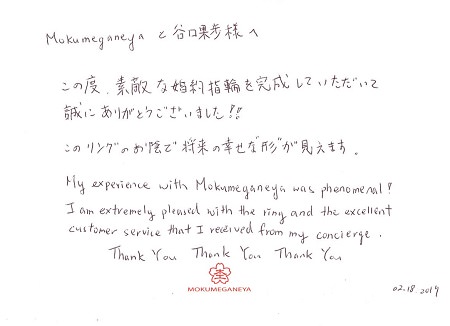 Mokumeganeya と谷口果歩様へ
この度、素敵な婚約指輪を完成していただいて
誠にありがとうございました!!
このリングのお陰で将来の幸せな"形"が見えます。
My experience with Mokumeganeya was phenomenal!
I am extremely pleased with the ring and the excellent
customer service that I received from my concierge.
Thank You Thank You Thank You
MOKUMEGANEYA
02.18.2019